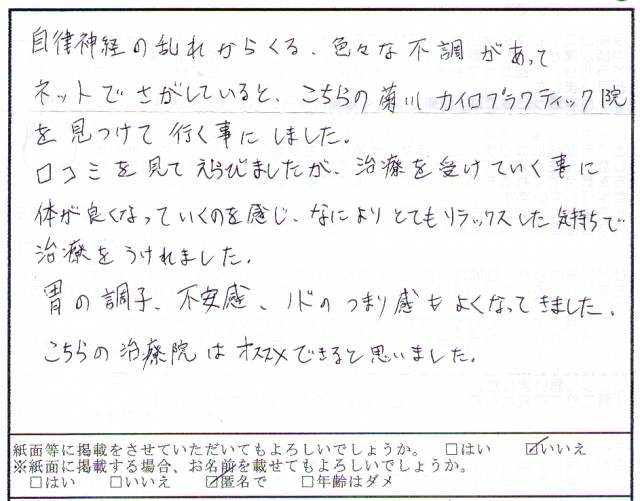 自律神経の乱れからくる、色々な不調があって
ネットでさがしていると、こちらの菊川カイロプラクティック院
を見つけて行く事にしました。
口コミを見てえらびましたが、治療を受けていく事に
体が良くなっていくのを感じ、なによりとてもリラックスした気持ちで
治療をうけれました。
胃の調子、不安感、ノドのつまり感もよくなってきました。
こちらの治療院はオススメできると思いました。
紙面等に掲載をさせていただいてもよろしいでしょうか。 □はい ☑いいえ
※紙面に掲載する場合、お名前を載せてもよろしいでしょうか。
□はい □いいえ ☑匿名で □年齢はダメ